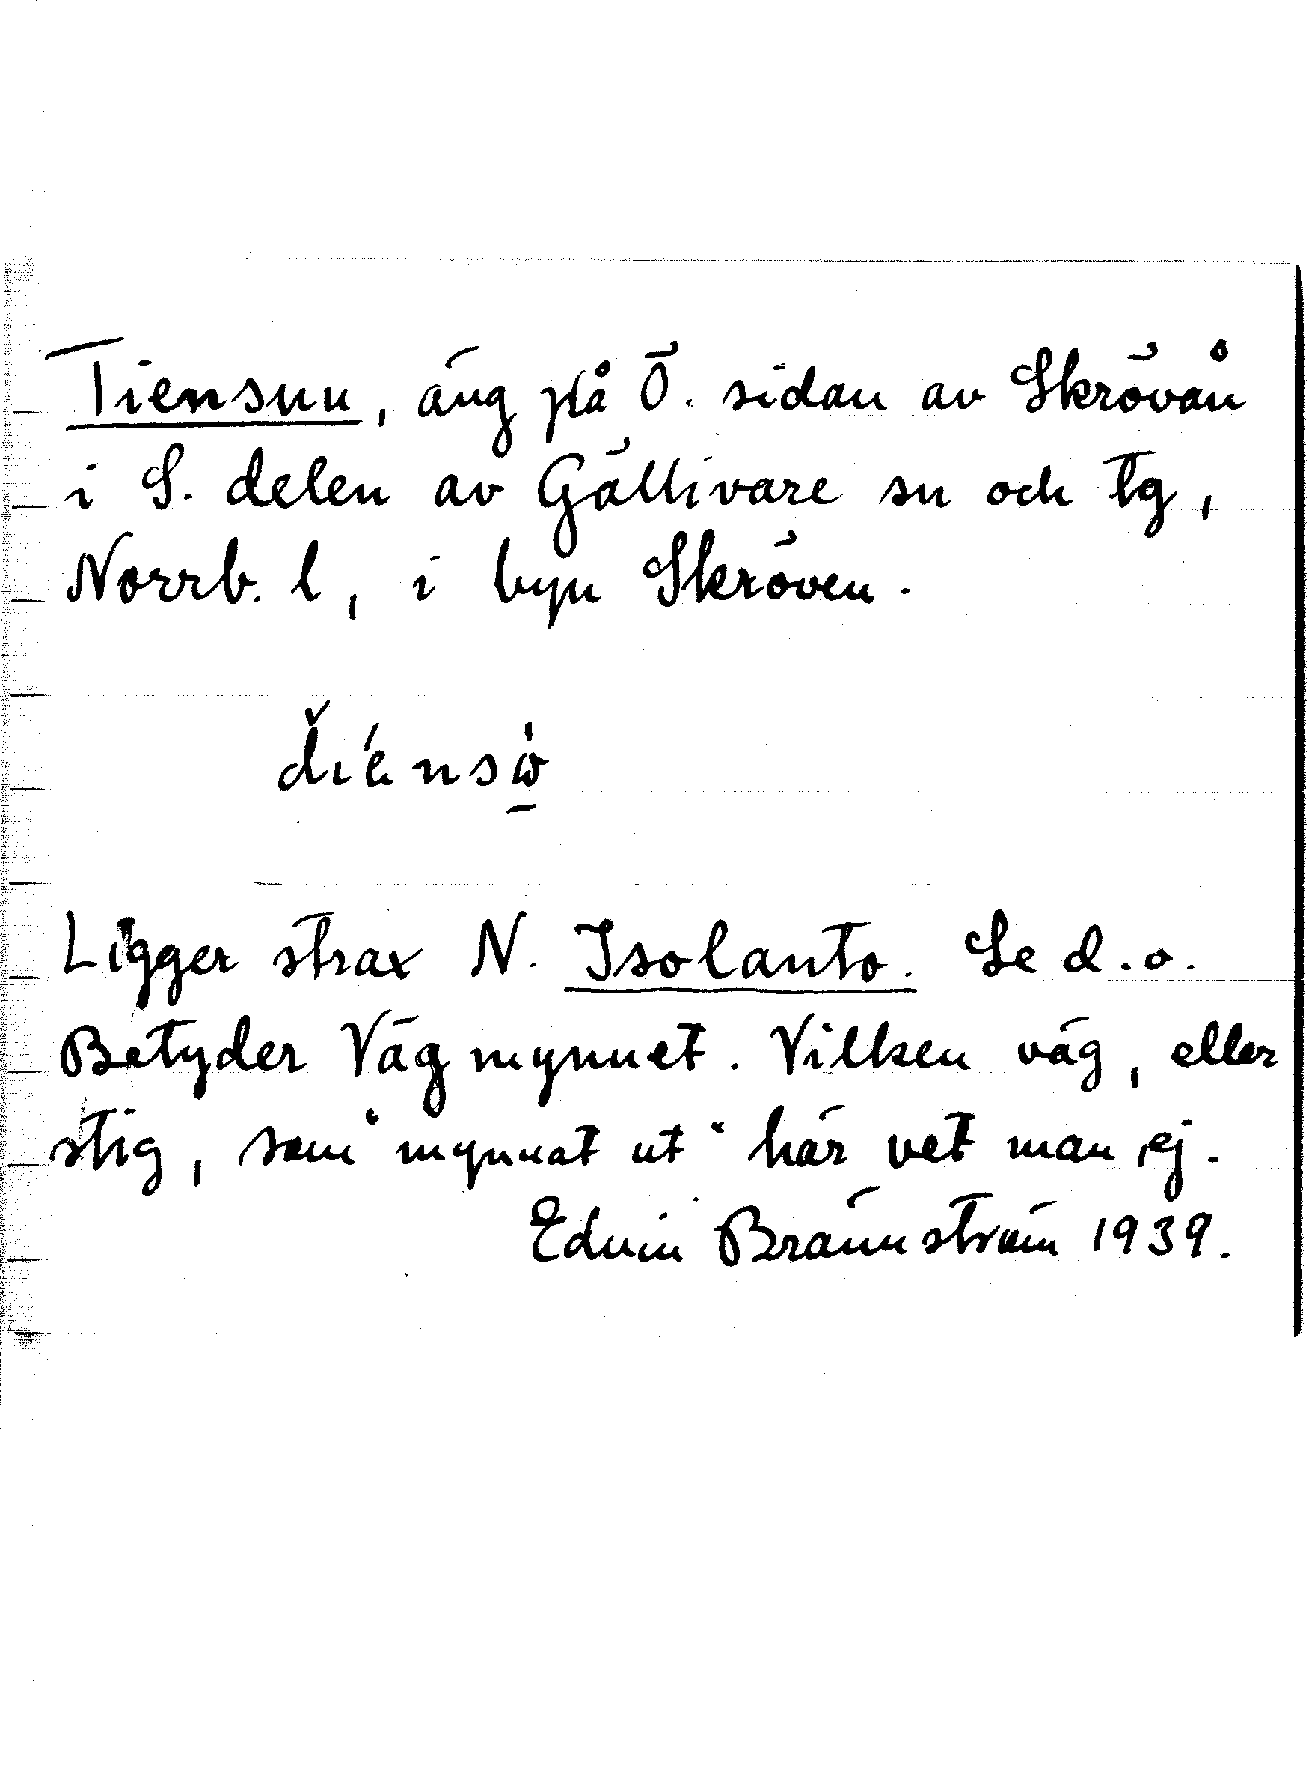 Tiensuu, äng på Ö. sidan av Skrövån
i S. delen av Gällivare sn och tg,
Norrb. l, i byn Skröven.
Ligger strax N. Isolanto. Se d.o.
Betyder Vägmynnet. Vilken väg, eller
stig, som "mynnat ut" här vet man ej.
Edvin Brännström 1939.